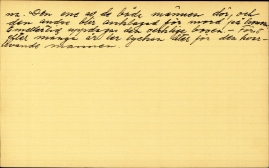 m. Den ene af de både männen dör, och
den andre blir anklagad för mord på honom.
Emellertid uppdagas den verklige boven – Först
efter många år ler lyckan åter för den kvar-
levande mannen.